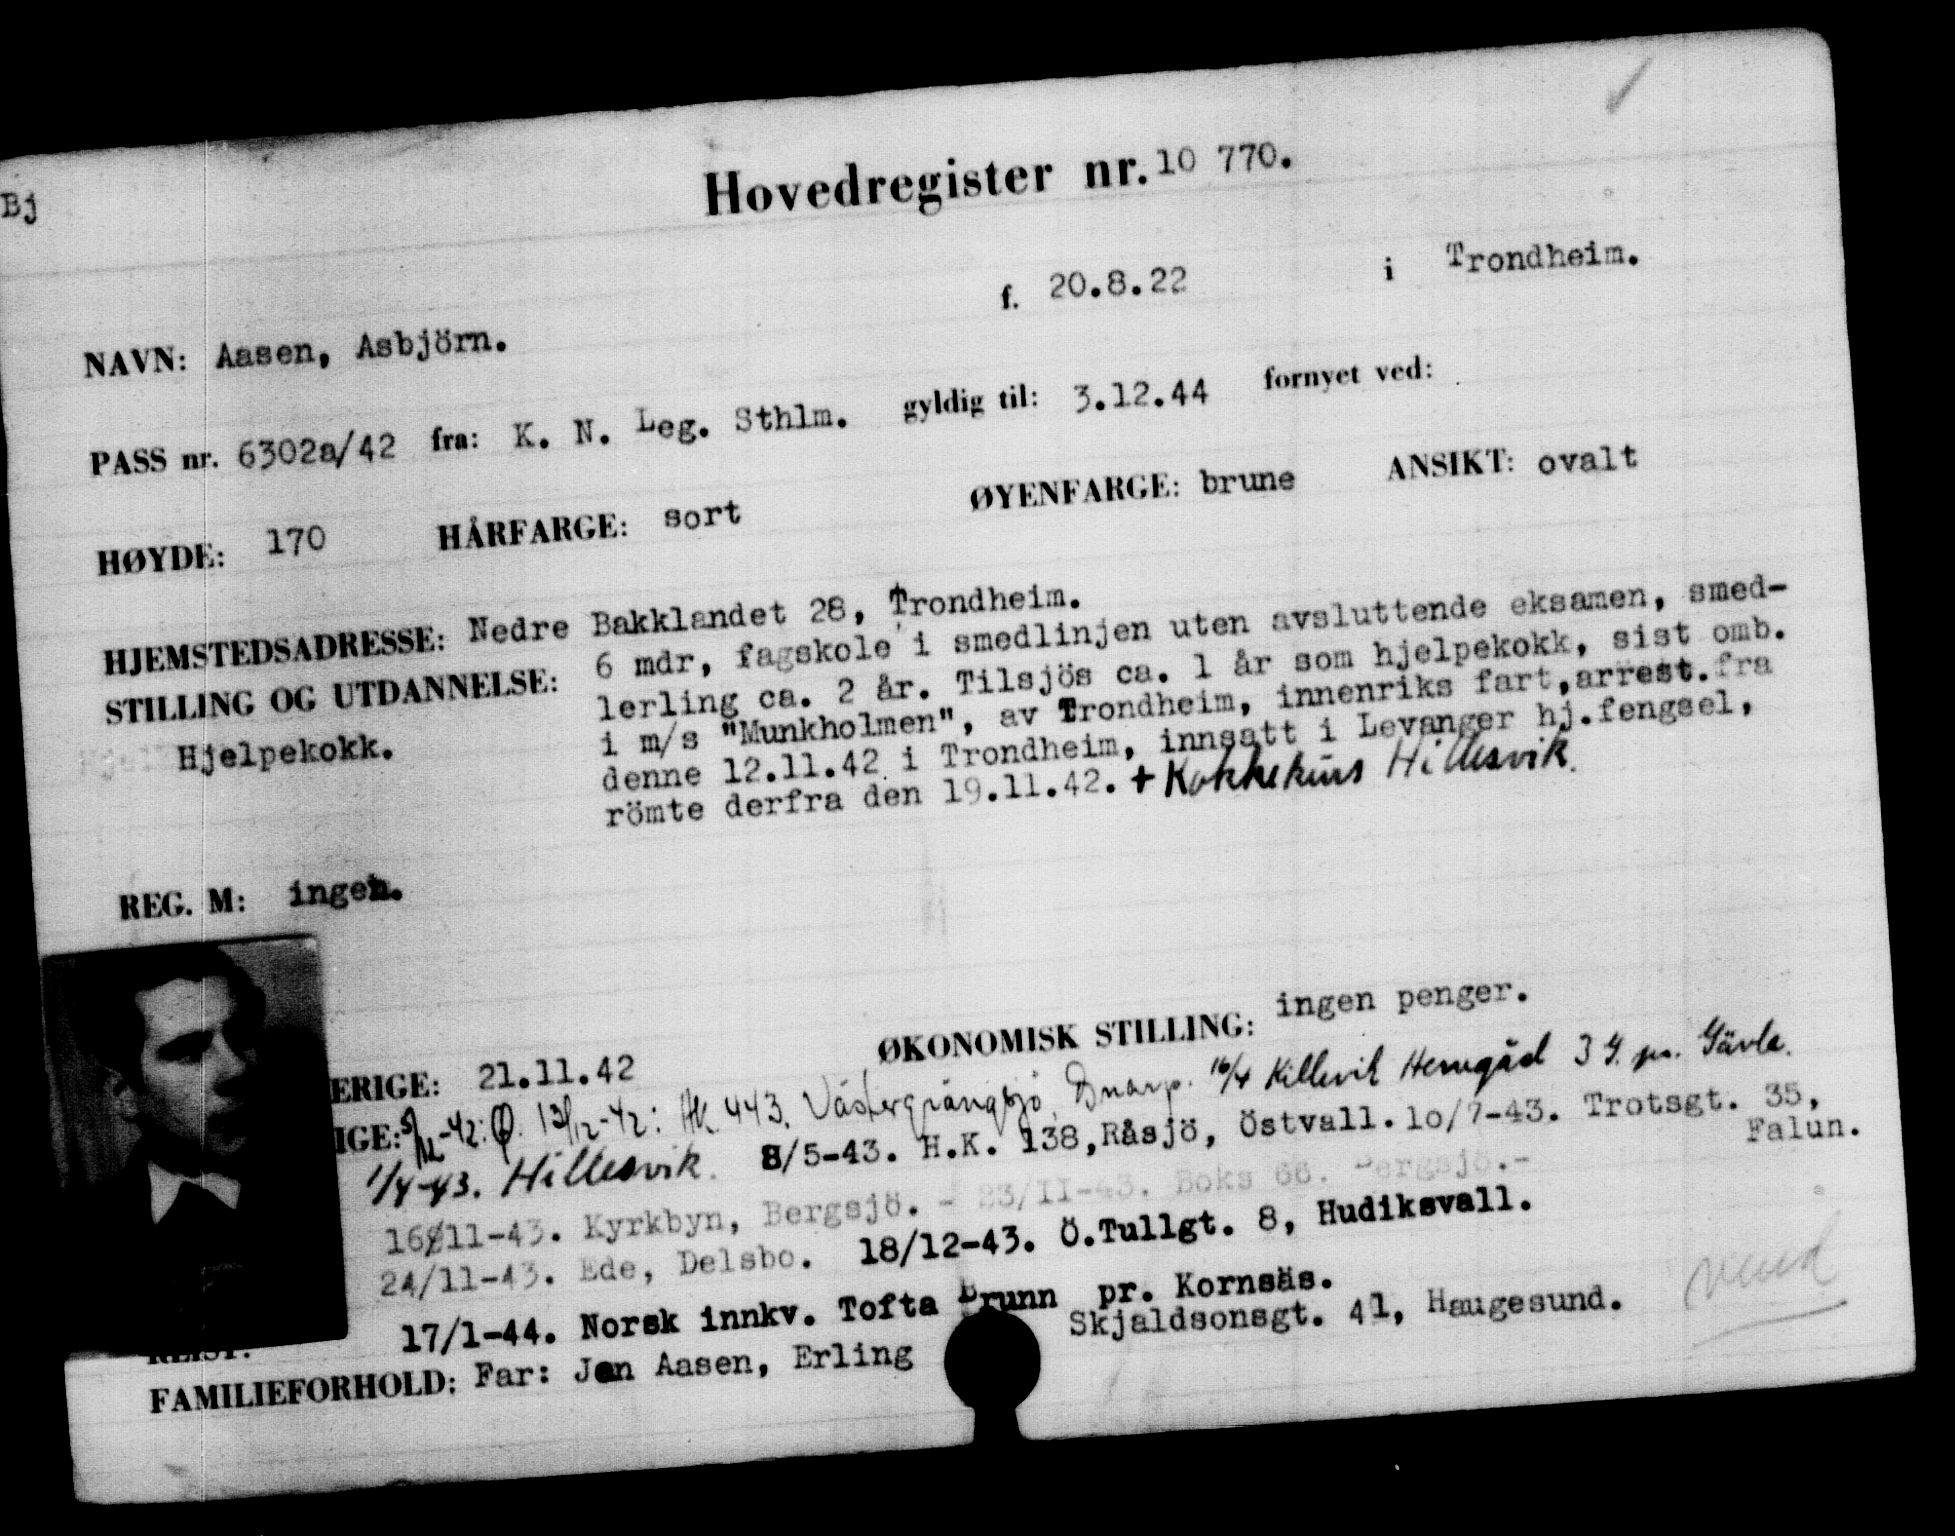 Bj
Hovedregister nr. 10 770.
NAVN: Aasen, Asbjörn. f. 20.8.22 i Trondheim.
PASS nr. 6302a/42 fra: K. N. Leg. Sthlm. gyldig til: 3.12.44 fornyet ved:
HØYDE: 170 HÅRFARGE: sort ØYENFARGE: brune ANSIKT: ovalt
HJEMSTEDSADRESSE: Nedre Bakklandet 28, Trondheim.
STILLING OG UTDANNELSE: 6 mdr, fagskole i smedlinjen uten avsluttende eksamen, smed-
lerling ca. 2 år. Tilsjös ca. 1 år som hjelpekokk, sist omb.
Hjelpekokk. i m/s "Munkholmen", av Trondheim, innenriks fart, arrest. fra
denne 12.11.42 i Trondheim, innsatt i Levanger hj.fengsel,
römte derfra den 19.11.42. + Kokkekurs Hillesvik.
REG. M: ingen.
ERIGE: 21.11.42 ØKONOMISK STILLING: ingen penger.
IGE: 5/12-42: Q. 13/12-42: HK 443. 16/4 Killevik Herrgård pr. Gävle.
1/4-43. Hillesvik. 8/5-43. H.K. 138, Råsjö, Östvall. lo/7-43. Trotsgt. 35,
Falun.
16/11-43. Kyrkbyn, Bergsjö. - 23/II-43. Boks 66. Bergsjö.-
24/11-43. Ede, Delsbo. 18/12-43. Ö.Tullgt. 8, Hudiksvall.
17/1-44. Norsk innkv. Tofta Brunn pr. Kornsäs.
REIST:
FAMILIEFORHOLD: Far: Jon Aasen, Erling Skjaldsonsgt. 41, Haugesund.
vend